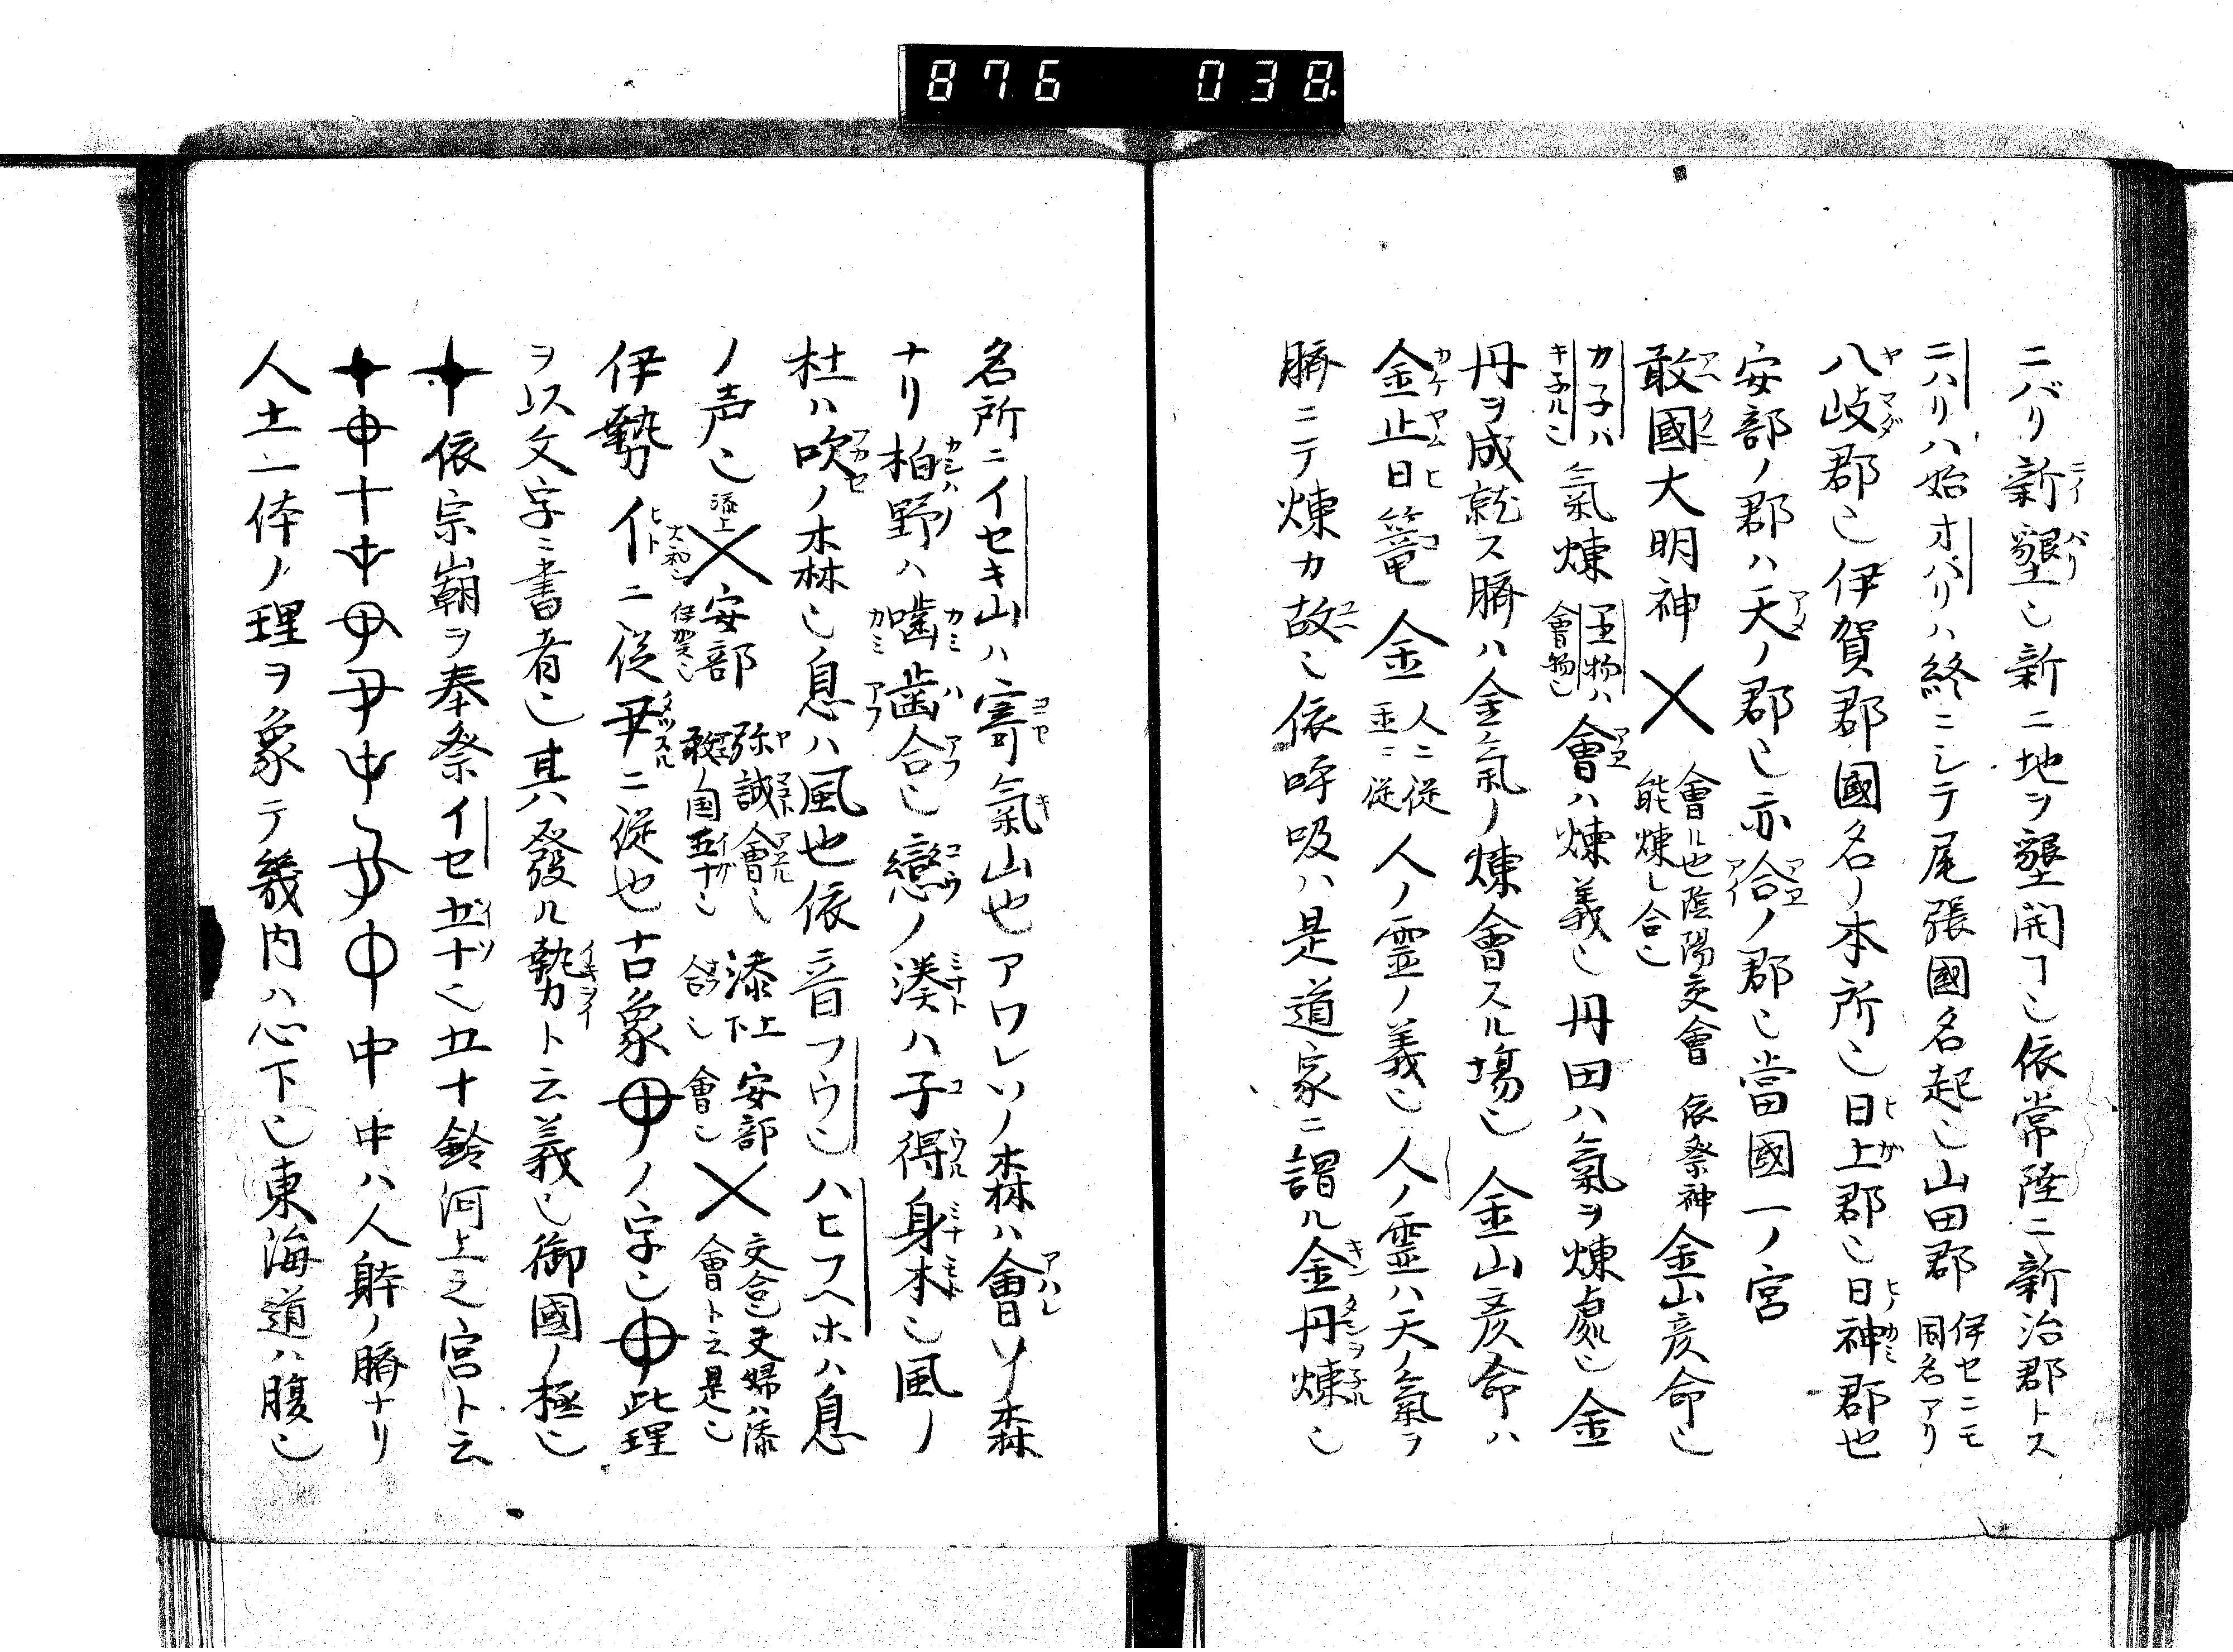 876 038
ニバリ新墾也新ニ地ヲ墾開フ也依常陸ニ新治郡トス
ニハリハ始オバリハ終ニシテ尾張國名起也山田郡 伊セニモ同名アリ
八岐郡也伊賀郡國名ノ本所也日上郡也日神郡也
安部ノ郡ハ天ノ郡也亦合ノ郡也當國一ノ宮
敢國大明神 會ル也陰陽交會 能煉也合也 依祭神金山彦命也
カ子ハ キ子ル也 氣煉 玉物ハ 會物也 會ハ煉義也丹田ハ氣ヲ煉處也金
丹ヲ成就ス臍ハ金氣ノ煉會スル場也金山彦命ハ
金止日篭金 人ニ従 玉ニ従 人ノ霊ノ義也人ノ霊ハ天ノ氣ヲ
臍ニテ煉カ故也依呼吸ハ是道家ニ謂ル金丹煉也
名所ニイセキ山ハ寄氣山也アワレソノ森ハ會ソ森
ナリ柏野ハ噛歯合也戀ノ湊ハ子得身本也風ノ
杜ハ吹ノ森也息ハ風也依音フウ也ハヒフヘホハ息
ノ声也 添上 大和也 安部 伊賀也 弥誠會也 敢国五十也 添上下 合也 安部 會也 交合也夫婦ハ添 會ト云是也
伊勢イニ従尹ニ従也古象ノ字也此理
ヲ以文字ニ書者也其八發ル勢ト云義也御國ノ極也
依宗廟ヲ奉祭イセ五十也五十鈴河上之宮ト云
中中ハ人躰ノ臍ナリ
人土一体ノ理ヲ象テ畿内ハ心下也東海道ハ腹也